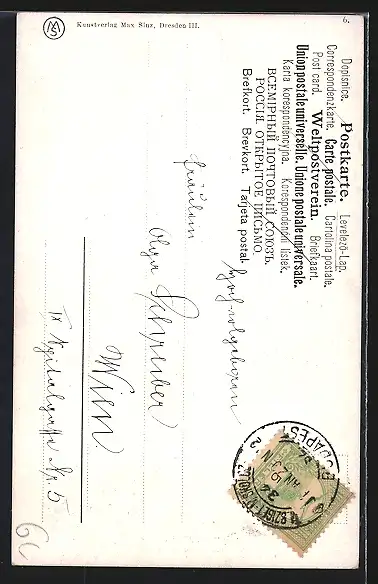 Dopisnice. Postkarte. Levelező-Lap.
Correspondenzkarte. Carte postale. Cartolina postale.
Post card. Weltpostverein. Briefkaart.
Union postale universelle. Unione postale universale.
Karta korespondencyjna. Korespondenční lístek.
ВСЕМІРНЫЙ ПОЧТОВЫЙ СОЮЗЪ.
РОССІЯ. ОТКРЫТОЕ ПИСЬМО.
Brefkort. Brevkort. Tarjeta postal.
Hochwolgeboren
Fräulein
Olga Schreiber
Wien
IX
Nr. 5
Kunstverlag Max Sinz, Dresden III.
6.
BUDAPEST
60